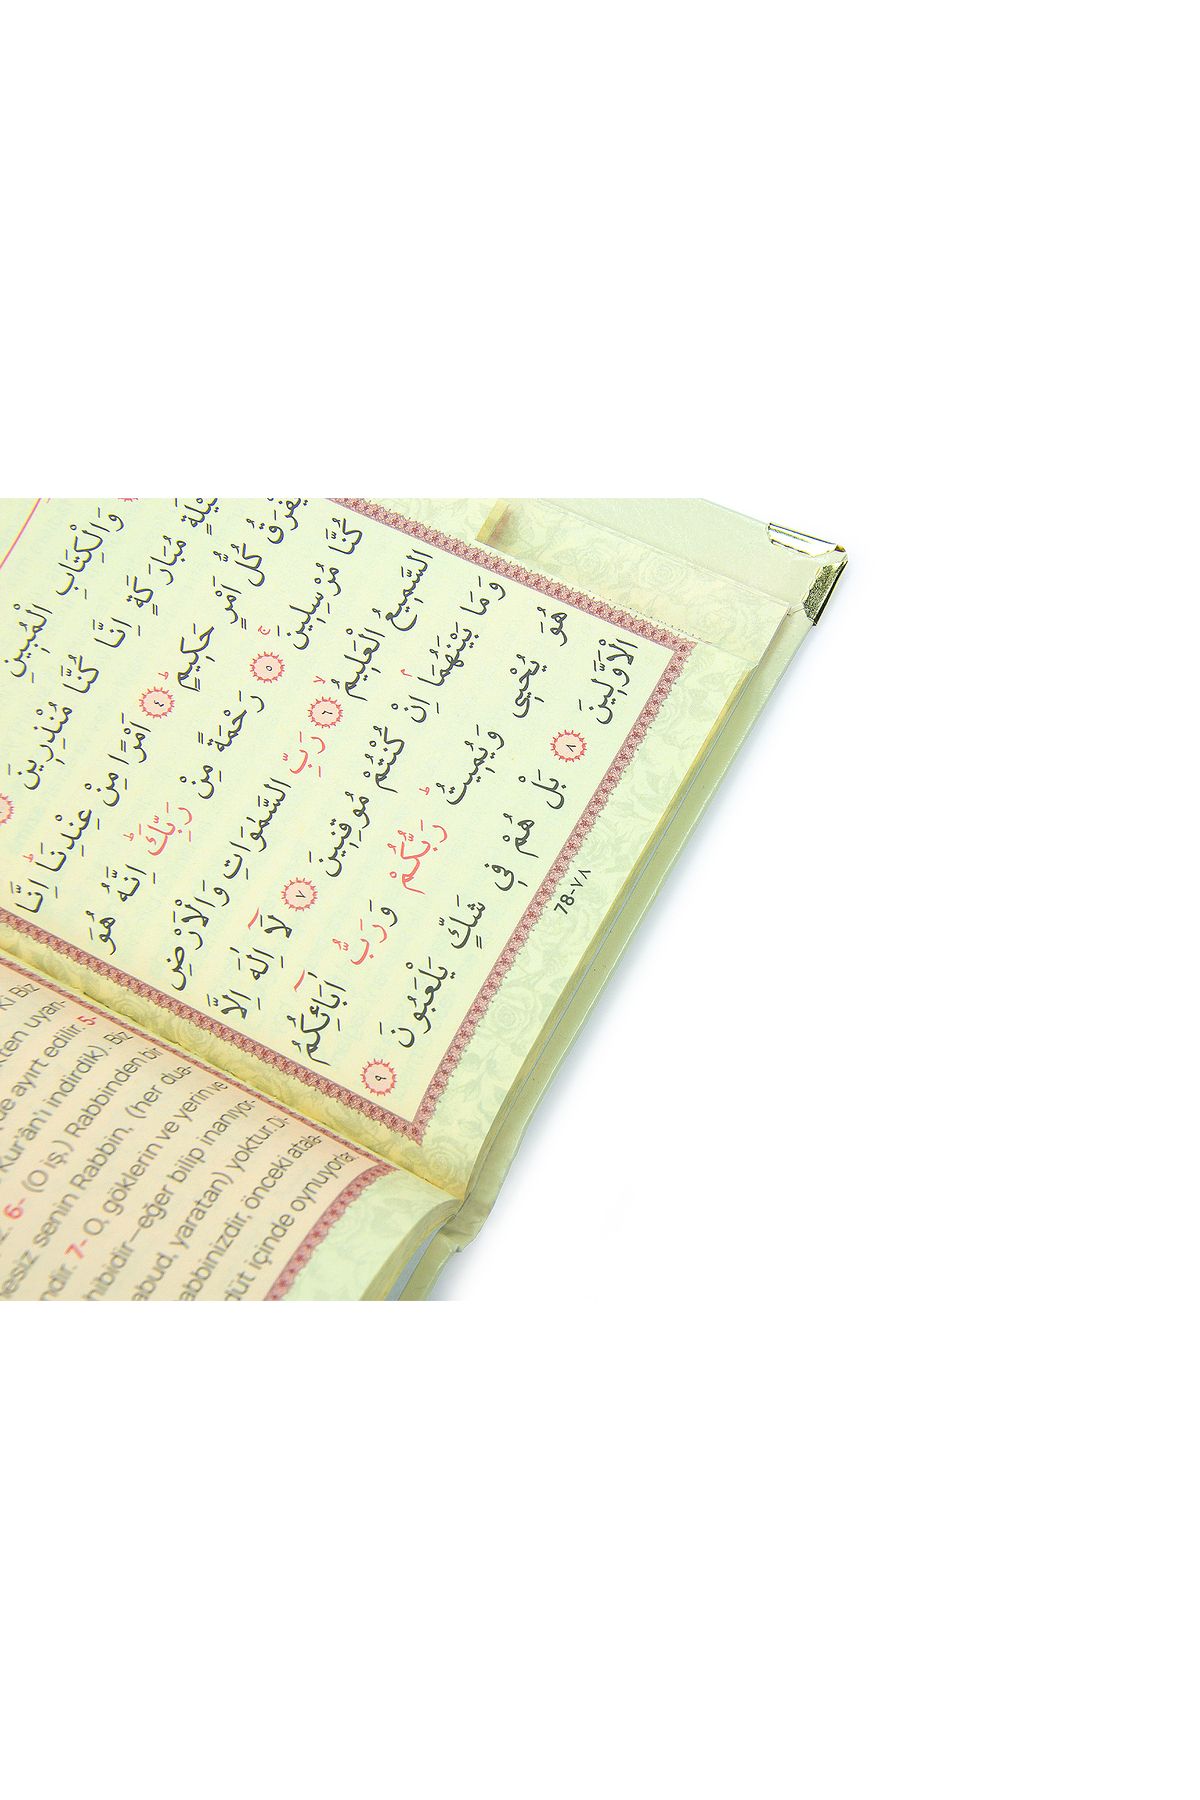 وَالْكِتَابِ الْمُبِينِ
مُبَارَكَةٍ اِنَّا كُنَّا مُنْذِرِينَ
كُلُّ اَمْرٍ حَكِيمٍ ﴿٤﴾ اَمْرًا مِنْ عِنْدِنَا اِنَّا
كُنَّا مُرْسِلِينَ ﴿٥﴾ رَحْمَةً مِنْ رَبِّكَ اِنَّهُ هُوَ
السَّمِيعُ الْعَلِيمُ ﴿٦﴾ رَبِّ السَّمٰوَاتِ وَالْاَرْضِ
وَمَا بَيْنَهُمَا اِنْ كُنْتُمْ مُوقِنِينَ ﴿٧﴾ لَٓا اِلٰهَ اِلَّا
هُوَ يُحْيِى وَيُمِيتُ رَبُّكُمْ وَرَبُّ اٰبَٓائِكُمُ
الْاَوَّلِينَ ﴿٨﴾ بَلْ هُمْ فِى شَكٍّ يَلْعَبُونَ ﴿٩﴾
78-٧٨
Ki Biz
uyan-
de ayırt edilir. 5-
Kur'ân'ı indirdik). Biz
6- (O iş,) Rabbinden bir
senin Rabbin, (her dua-
7- O, göklerin ve yerin ve
eğer bilip inanıyor-
yaratan) yoktur. Di-
önceki atala-
içinde oynuyorlar.